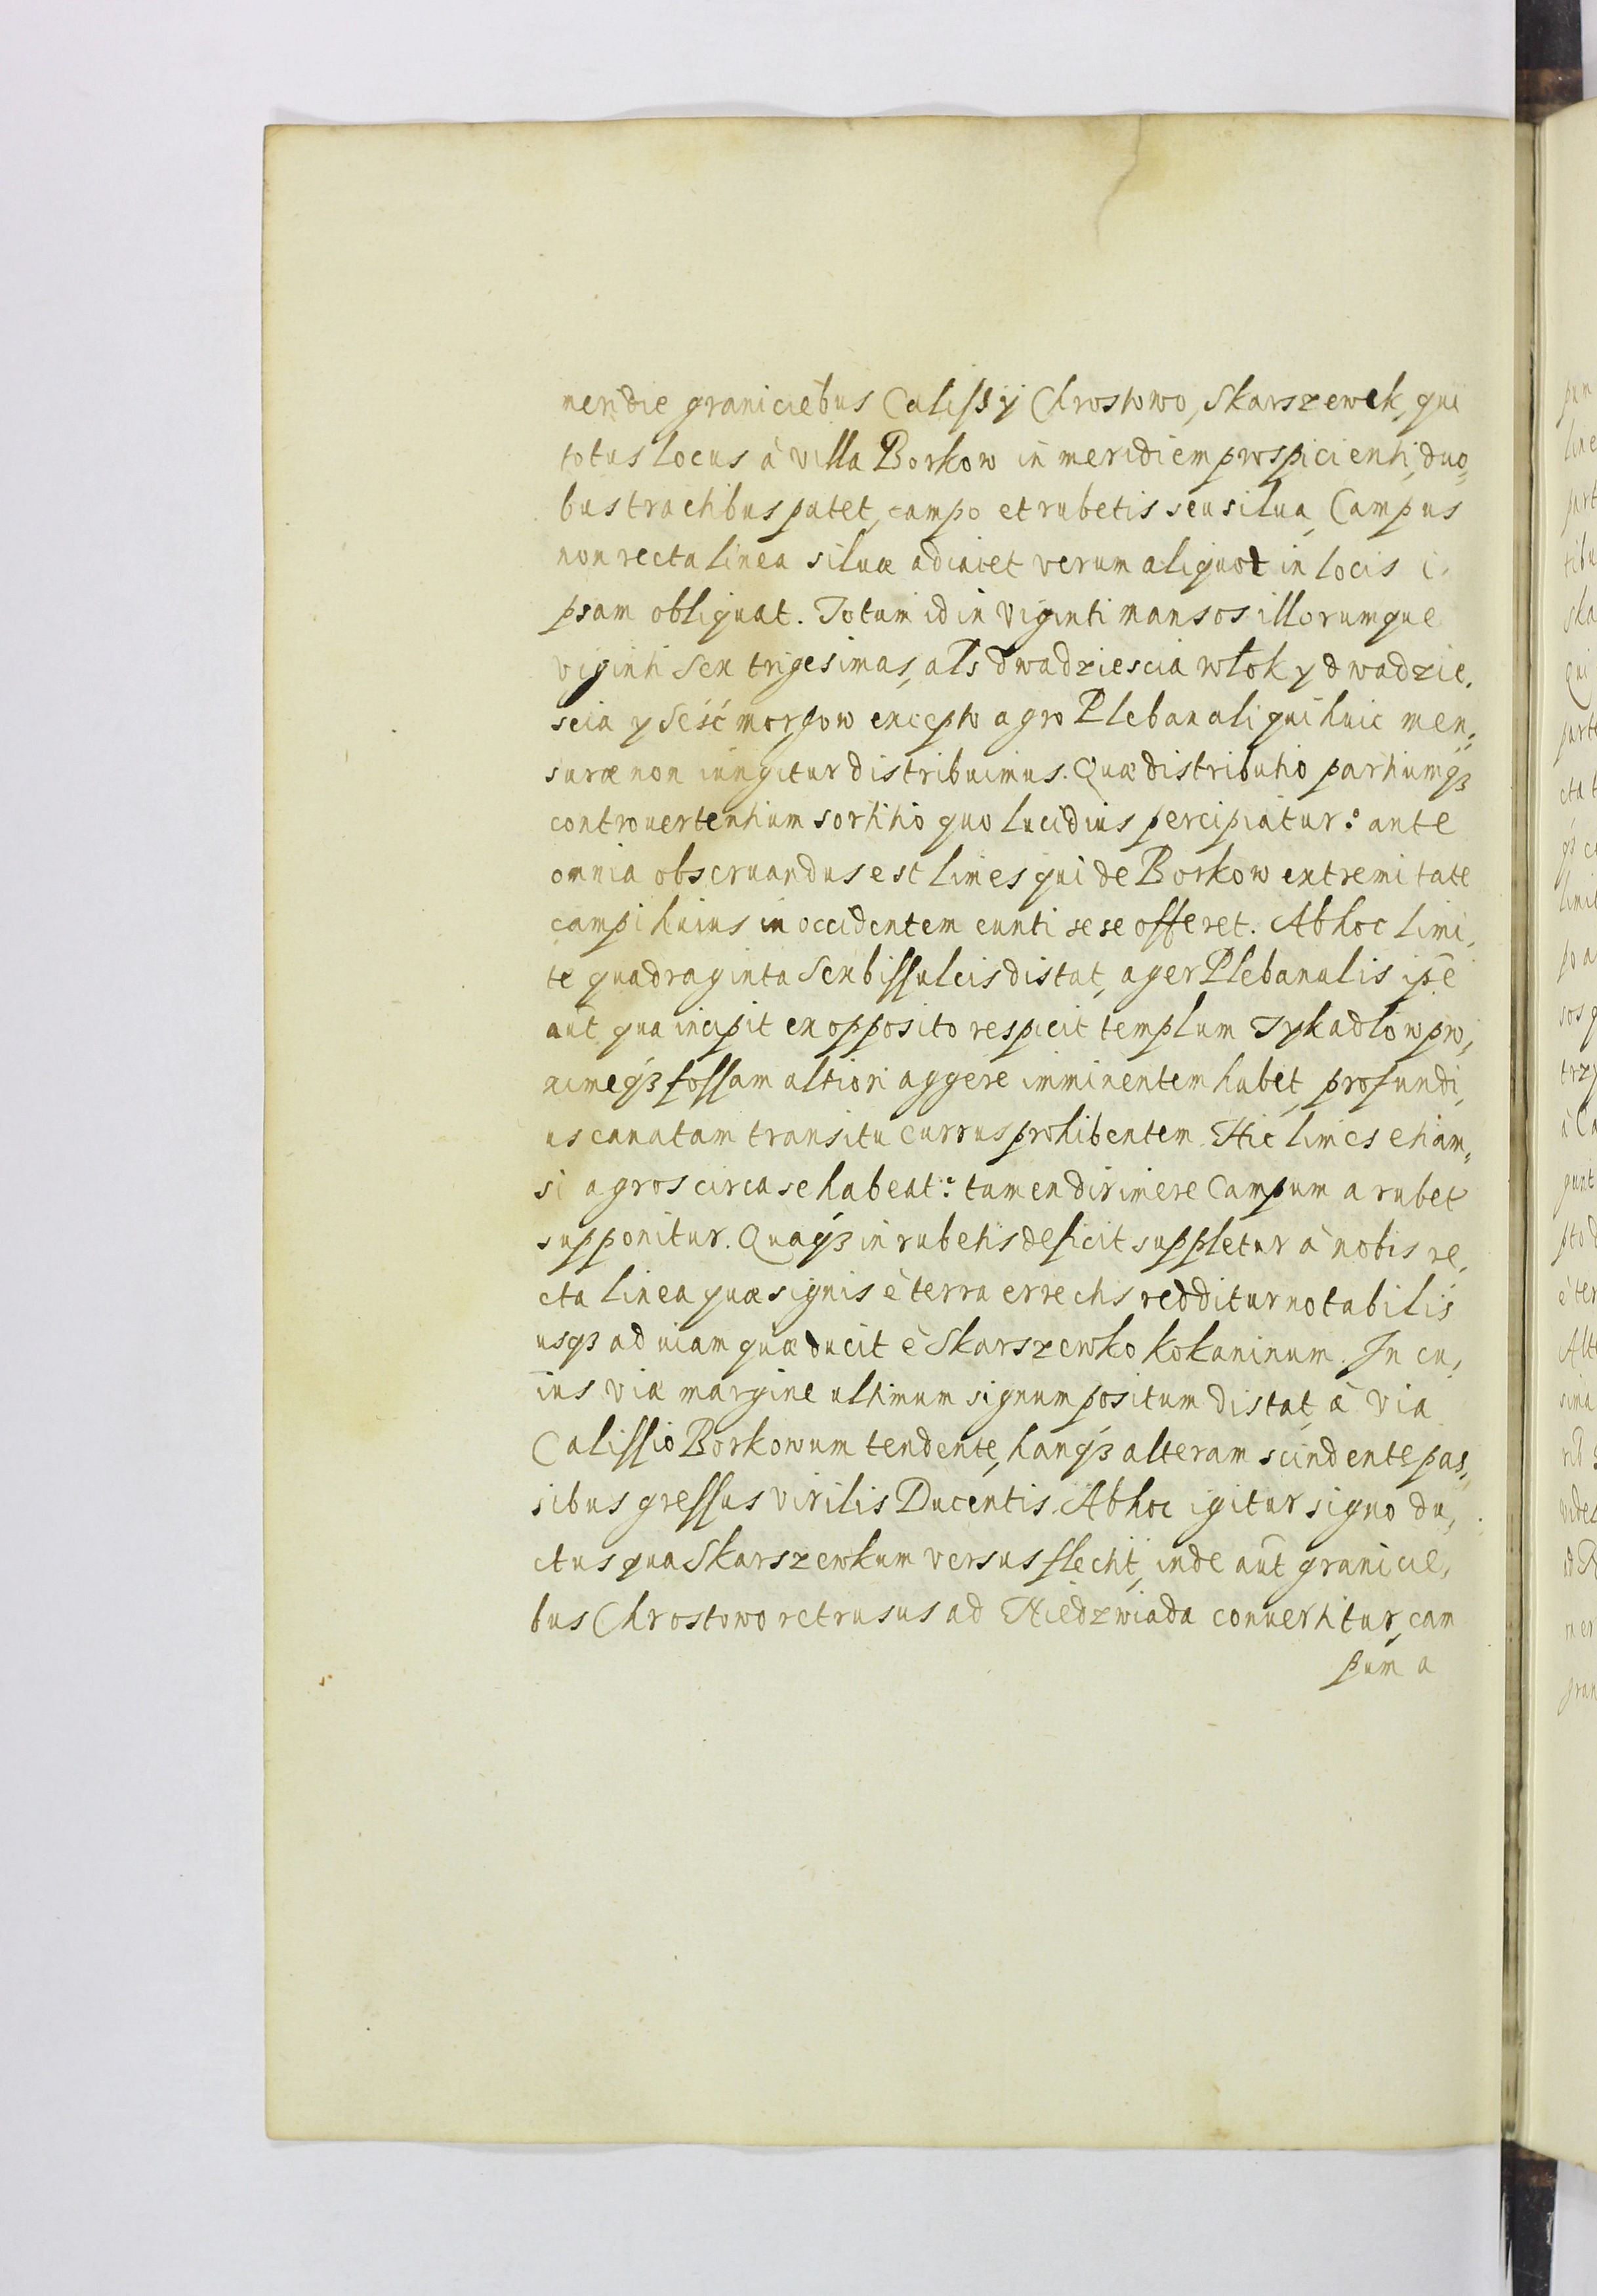 meridie graniciebus Calissÿ Chrostowo, Skarszewek, qui
totus locus à villa Borkow in meridiem prospicienti, duo¸
bus tractibus patet, campo et rubetis seu silua, Campus
non recta linea siluæ adiacet verum aliquot in locis i¸
psam obliquat. Totum id in viginti mansos illorumque
viginti sex trigesimas, als dwadziescia włok y dwadzie¸
scia y seśc morgow excepto agro Plebanali qui huic men¸
suræ non iungitur distribuimus. Quæ distributio partiumqȝ
controuertentium sortitio quo lucidius percipiatur: ante
omnia obseruandus est limes qui de Borkow extremitate
campi huius in occidentem eunti sese offeret. Ab hoc limi¸
te quadraginta sex bissulcis distat, ager Plebanalis ipe
aut qua incipit ex opposito respicit templum Tykadlow pro¸
ximeqȝ fossam altiori aggere imminentem habet, profundi¸
us cauatam transitu currus prohibentem. Hic limes etiam¸
si agros circa se habeat: tamen dirimere Campum a rubet
supponitur. Quaqȝ in rubetis deficit suppletur à nobis re¸
cta linea quæ signis è terra errectis redditur notabilis
usqȝ ad uiam quæ ducit è Skarszewko kokaninum. In cu¸
ius viæ margine ultimum signum positum distat, à via
Calissio Borkowum tendente, hanqȝ alteram scindente pas¸
sibus gressus virilis Ducentis. Ab hoc igitur signo du¸
ctus qua Skarszewkum versus flectit, inde aut granicie¸
bus Chrostowo retrusus ad Niedzwiada conuertitur, cam
pum a